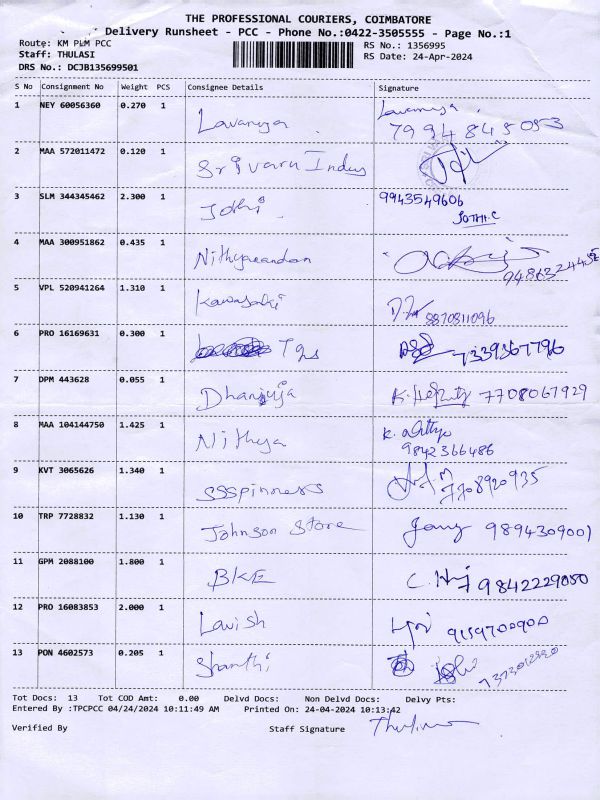 THE PROFESSIONAL COURIERS, COIMBATORE
Delivery Runsheet - PCC - Phone No.:0422-3505555 - Page No.:1
Route: KM PLM PCC
RS No.: 1356995
Staff: THULASI
RS Date: 24-Apr-2024
DRS No.: DCJB135699501
S No Consignment No Weight PCS Consignee Details Signature
1 NEY 60056360 0.270 1 Lavanya
7994845053
2 MAA 572011472 0.120 1 Srivaru Indus
3 SLM 344345462 2.300 1 Jothi 9943549606
JOTHI.C
4 MAA 300951862 0.435 1 Nithyanandan
5 VPL 520941264 1.310 1 Kawasaki 8870811096
6 PRO 16169631 0.300 1 Tgs 7339367796
7 DPM 443628 0.055 1 Dhanjuja 7708067929
8 MAA 104144750 1.425 1 Nithya
9842366486
9 KVT 3065626 1.340 1 SSSpinners 7708920935
10 TRP 7728832 1.130 1 Johnson Store 9894309001
11 GPM 2088100 1.800 1 BKE 9842229050
12 PRO 16083853 2.000 1 Lavish 9159700900
13 PON 4602573 0.205 1 Shanthi
Tot Docs: 13 Tot COD Amt: 0.00 Delvd Docs: Non Delvd Docs: Delvy Pts:
Entered By :TPCPCC 04/24/2024 10:11:49 AM Printed On: 24-04-2024 10:13:42
Verified By Staff Signature